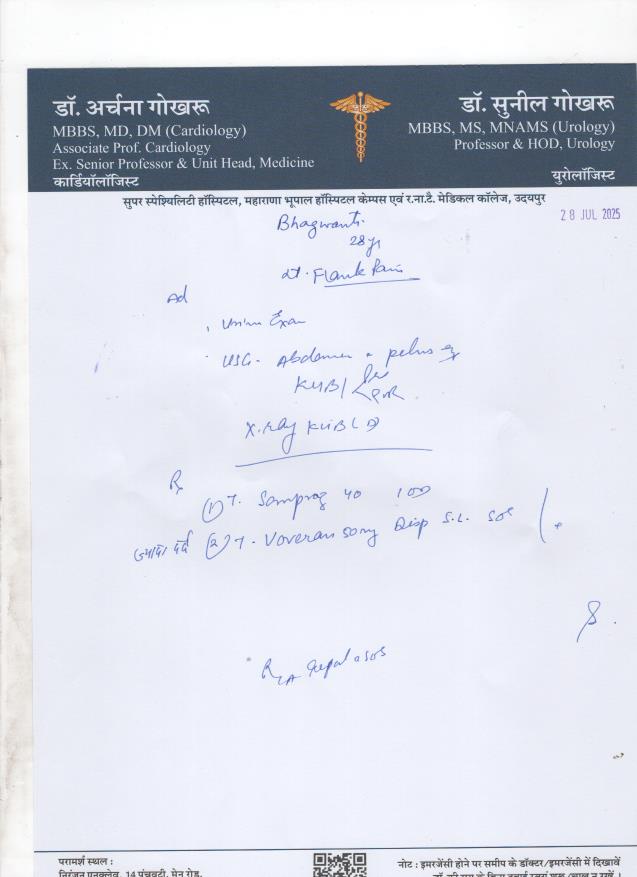 डॉ. अर्चना गोखरू
MBBS, MD, DM (Cardiology)
Associate Prof. Cardiology
Ex. Senior Professor & Unit Head, Medicine
कार्डियॉलॉजिस्ट
डॉ. सुनील गोखरू
MBBS, MS, MNAMS (Urology)
Professor & HOD, Urology
युरोलॉजिस्ट
सुपर स्पेश्यिलिटी हॉस्पिटल, महाराणा भूपाल हॉस्पिटल केम्पस एवं र.ना.टै. मेडिकल कॉलेज, उदयपुर
28 JUL 2025
Bhagwanti
28 yr
Flank Pain
Ad
Urine Exam
USG. Abdomen pelvis
KUB/
PVR
X-ray KUB
Rx
(1) T. Sompraz 40 1OD
(2) T. Voveran 50mg Disp S.L. SOS
SOS
परामर्श स्थल :
निरंजन एनक्लेव, 14 पंचवटी, मेन रोड,
नोट : इमरजेंसी होने पर समीप के डॉक्टर/इमरजेंसी में दिखावें